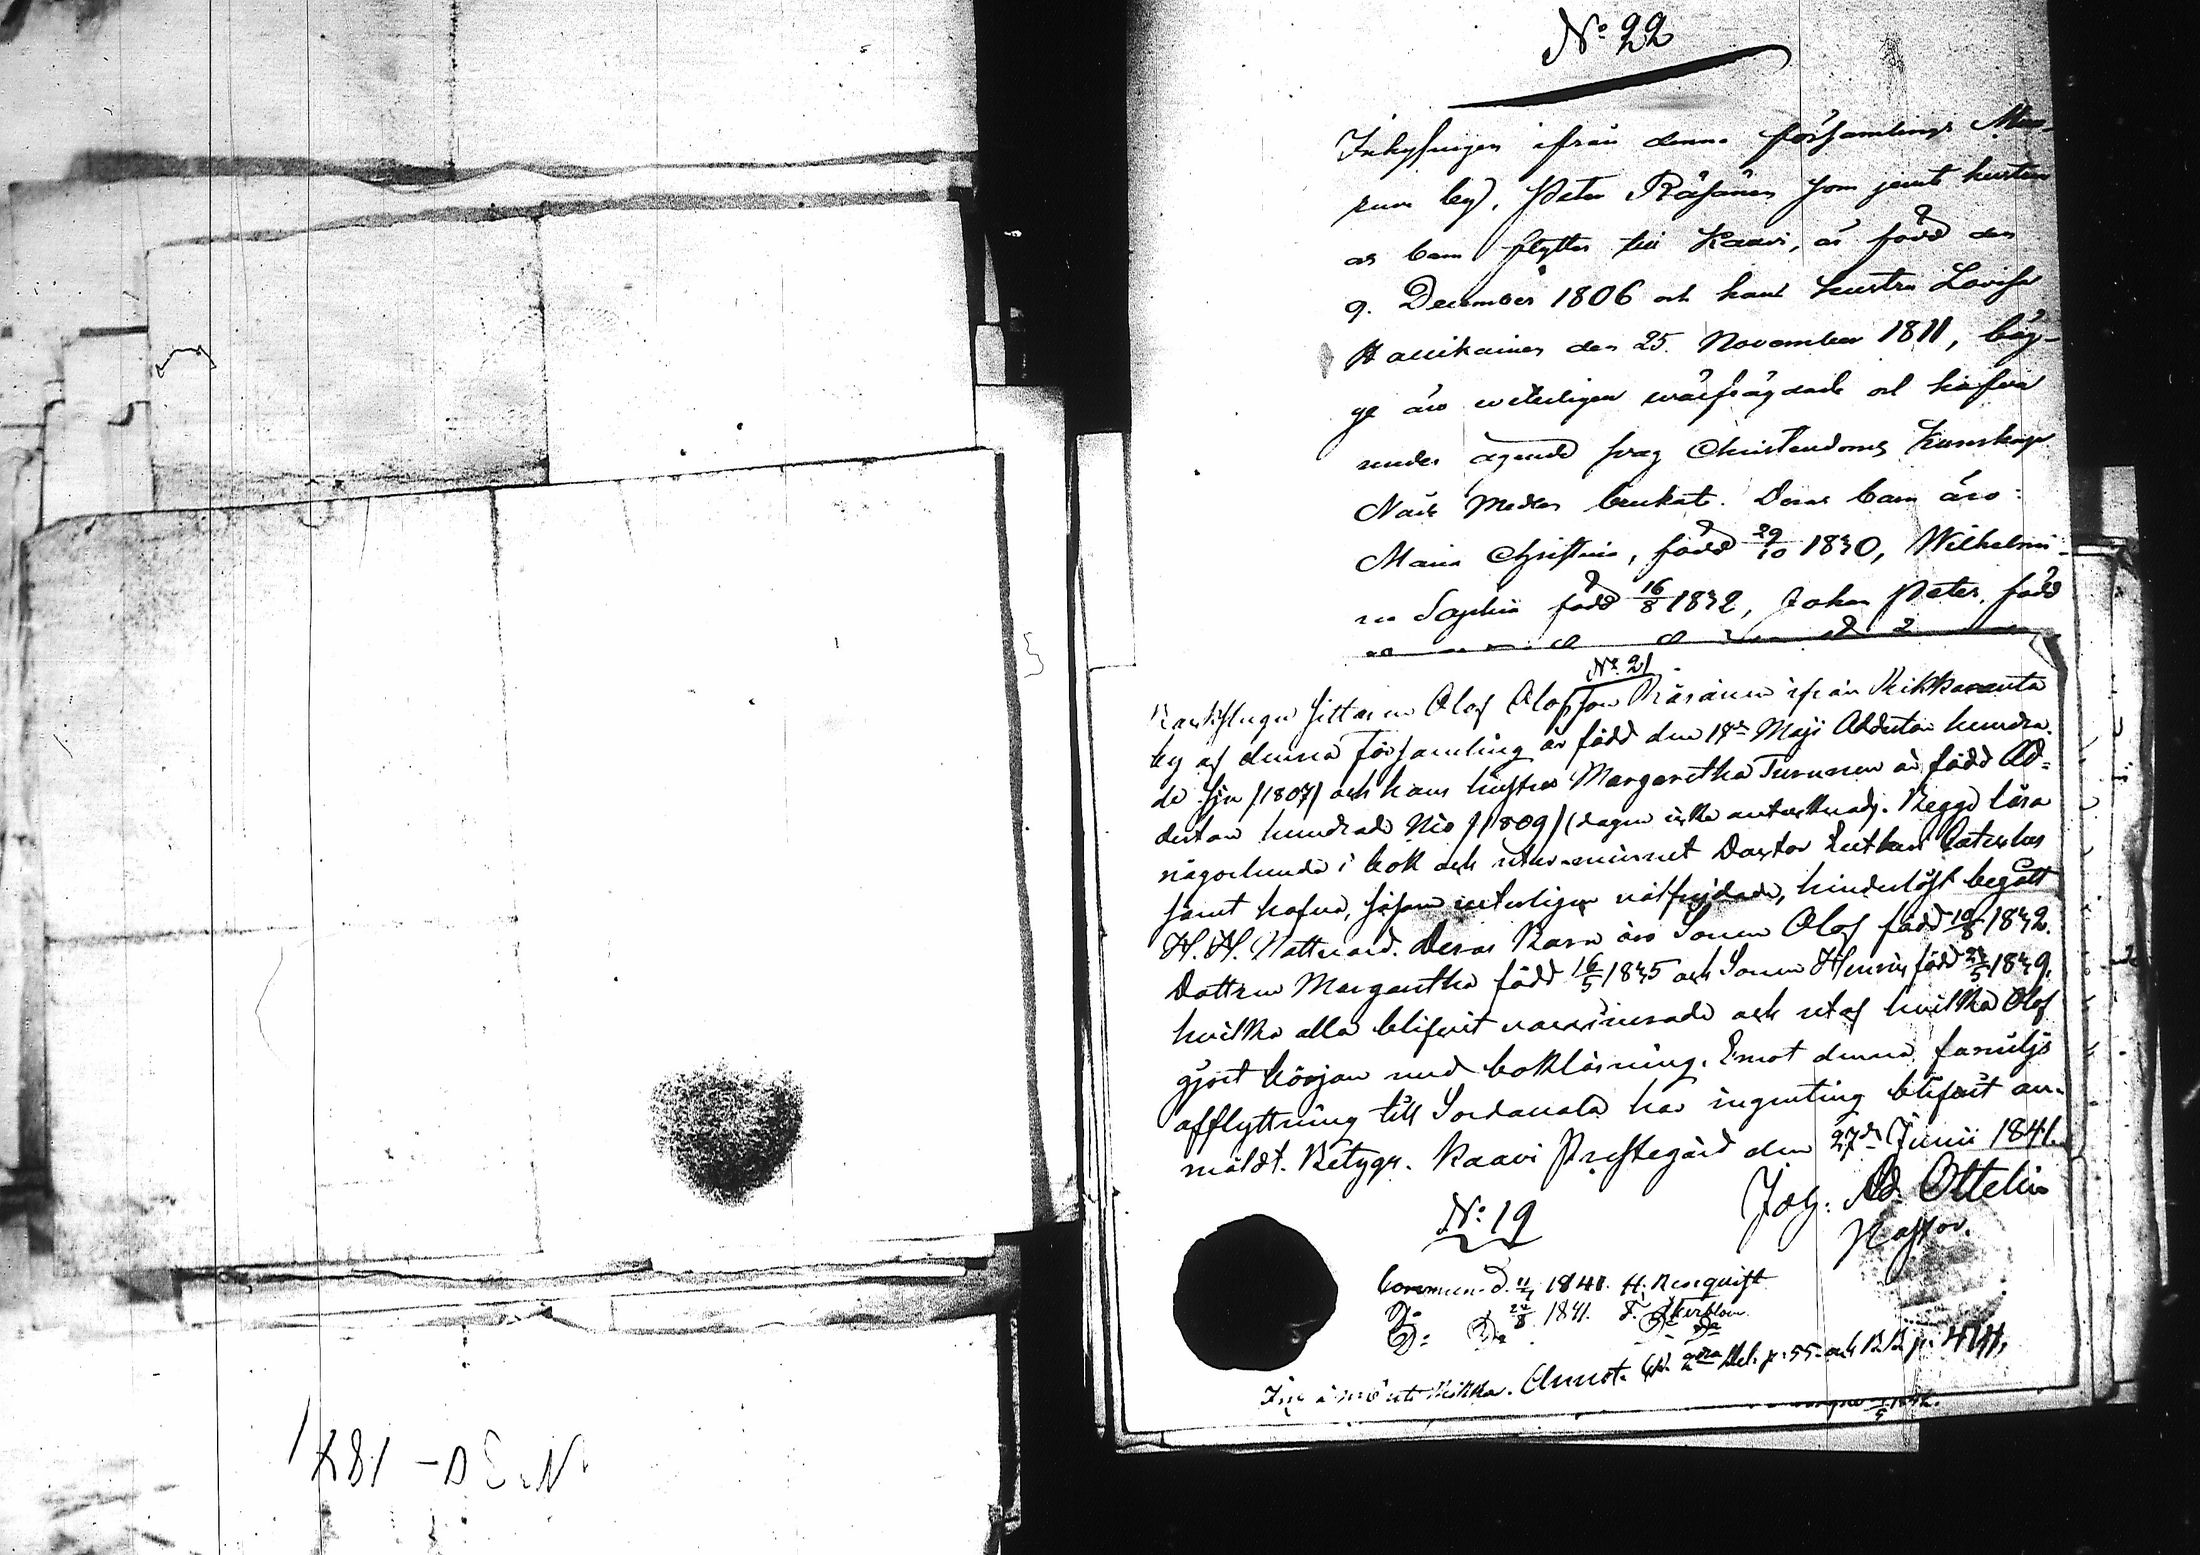 No 22
Inhysingen ifrån denna församlings Muu-
ruu by, Peter Räsänen som jemte hustru
och barn flytta till Kaavi, är född den
9. December 1806 och hans hustru Lovisa
Hanikainen den 25. November 1811, bäg-
ge äro witterligen wälfrägdade och hafva
under ägande svag Christendoms kunskap
Natt warden brukat. Deras barn äro:
Maria Christina, född 29/10 1830, Wilhelmi-
na Sophia född 16/8 1832, Johan Peter, född
No 21
Olof Olofsson Räsänen ifrån Rikkaranta
by af denna Församling är född den 18de Maji Adertonhundra-
de Sju /1807/ och hans hustru Margaretha Turunen är född Ad-
derton hundrade Nio /1809/ (dagen icke antecknad). Begge läsa
någorlunda i bok och utur minnet Doctor Luthers Cateches
samt hafva, såsom witterligen välfrejdade, hinderlöst begått
H. H. Nattvard. Deras Barn äro Sonen Olof född 19/8 1832.
Dottren Margaretha född 16/5 1835 och Sonen Henric född 24/5 1839.
hvilka alla blifvit vaccinerade och utaf hvilka Olof
gjort början med bokläsning. Emot denna familjs
afflyttning till Sordavala har ingenting blifvit an-
mäldt. Betygr. Kaavi Prestegård den 27de Junii 1841.
Joh. Ad. Ottelin
Pastor.
No 19
Commun. d. 11/7 1841. H. Renquist
Do Do 22/8 1841. F. Åkerblom
Do Do
Annot. 2dra Del. p. 55. och B.B. p. 474.
No 30 - 184